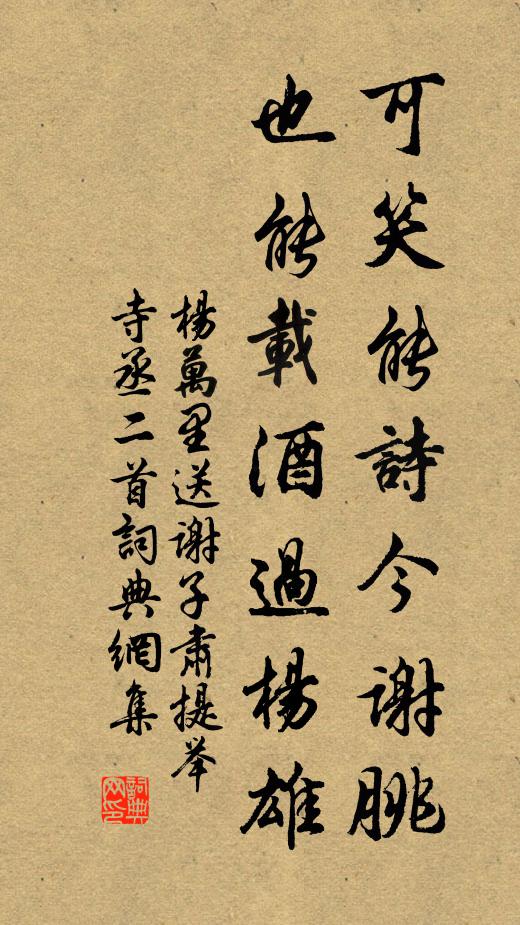 可笑能詩今謝朓
也能載酒過楊雄
楊萬里送謝子肅提举
寺丞二首詞典網集
詞典网印